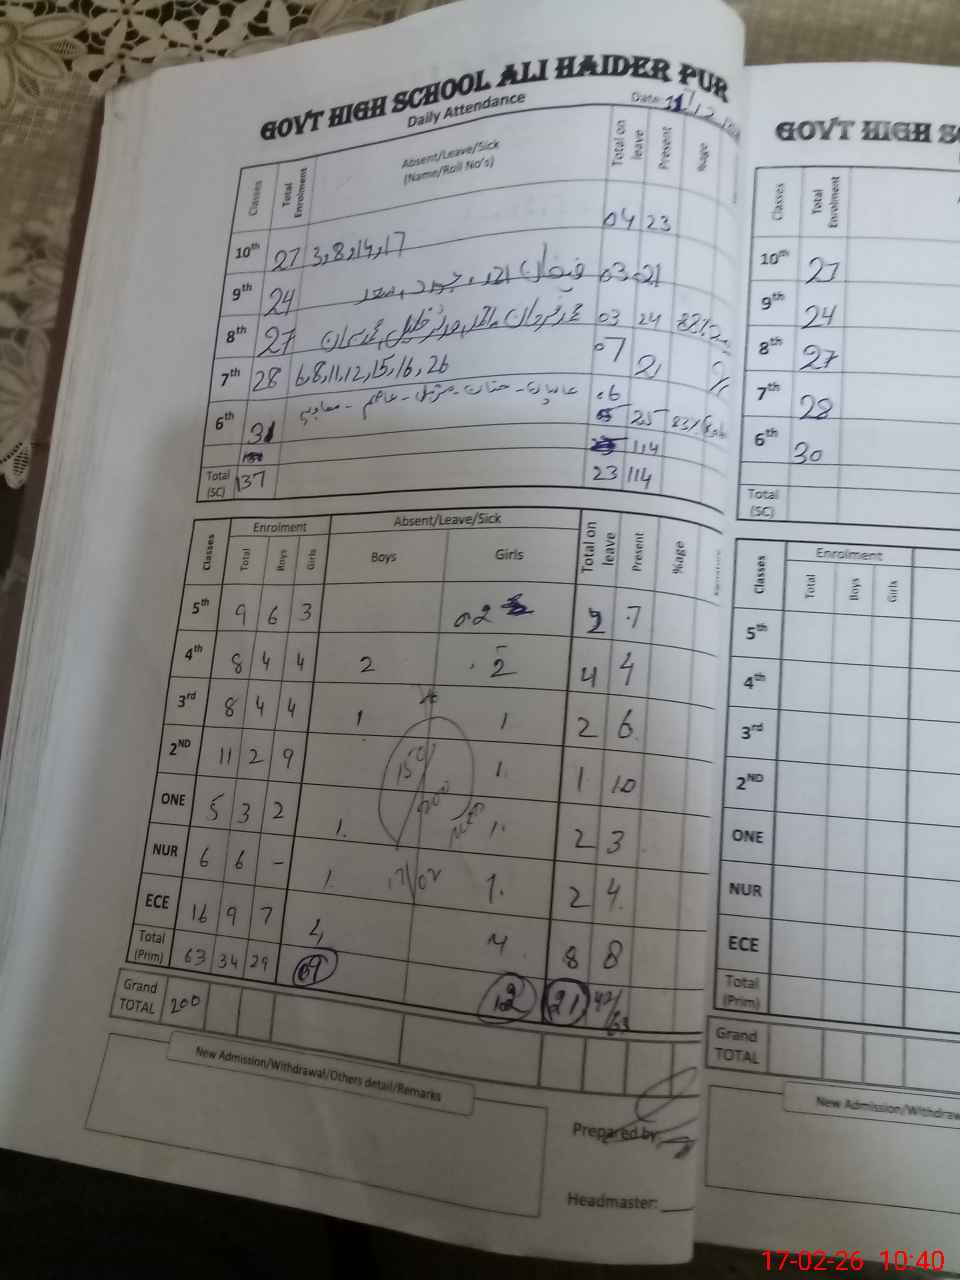 GOVT HIGH SCHOOL ALI HAIDER PUR
Daily Attendance
Date: 11/12
Classes Total Enrolment Absent/Leave/Sick (Name/Roll No's) Total on leave Present %age
10th 27 3,8,14,17 04 23
9th 24 03 21
8th 27 03 24 88%
7th 28 6,8,11,12,15,16,26 07 21
6th 31 06 25 83%
114
Total (SC) 137 23 114
Classes Enrolment Absent/Leave/Sick Total on leave Present %age
Total Boys Girls Boys Girls
5th 9 6 3 02 2 7
4th 8 4 4 2 2 4 4
3rd 8 4 4 1 1 2 6
2ND 11 2 9 1 1 10
ONE 5 3 2 1 1 2 3
NUR 6 6 - 1 1 2 4
ECE 16 9 7 4 4 8 8
Total (Prim) 63 34 29 09 12 21 42/63
150/200
Grand TOTAL 200
New Admission/Withdrawal/Others detail/Remarks
Prepared by:
Headmaster:
GOVT HIGH
Classes Total Enrolment
10th 27
9th 24
8th 27
7th 28
6th 30
Total (SC)
Classes Enrolment
Total Boys Girls
5th
4th
3rd
2ND
ONE
NUR
ECE
Total (Prim)
Grand TOTAL
New Admission/Withdraw
17-02-26 10:40